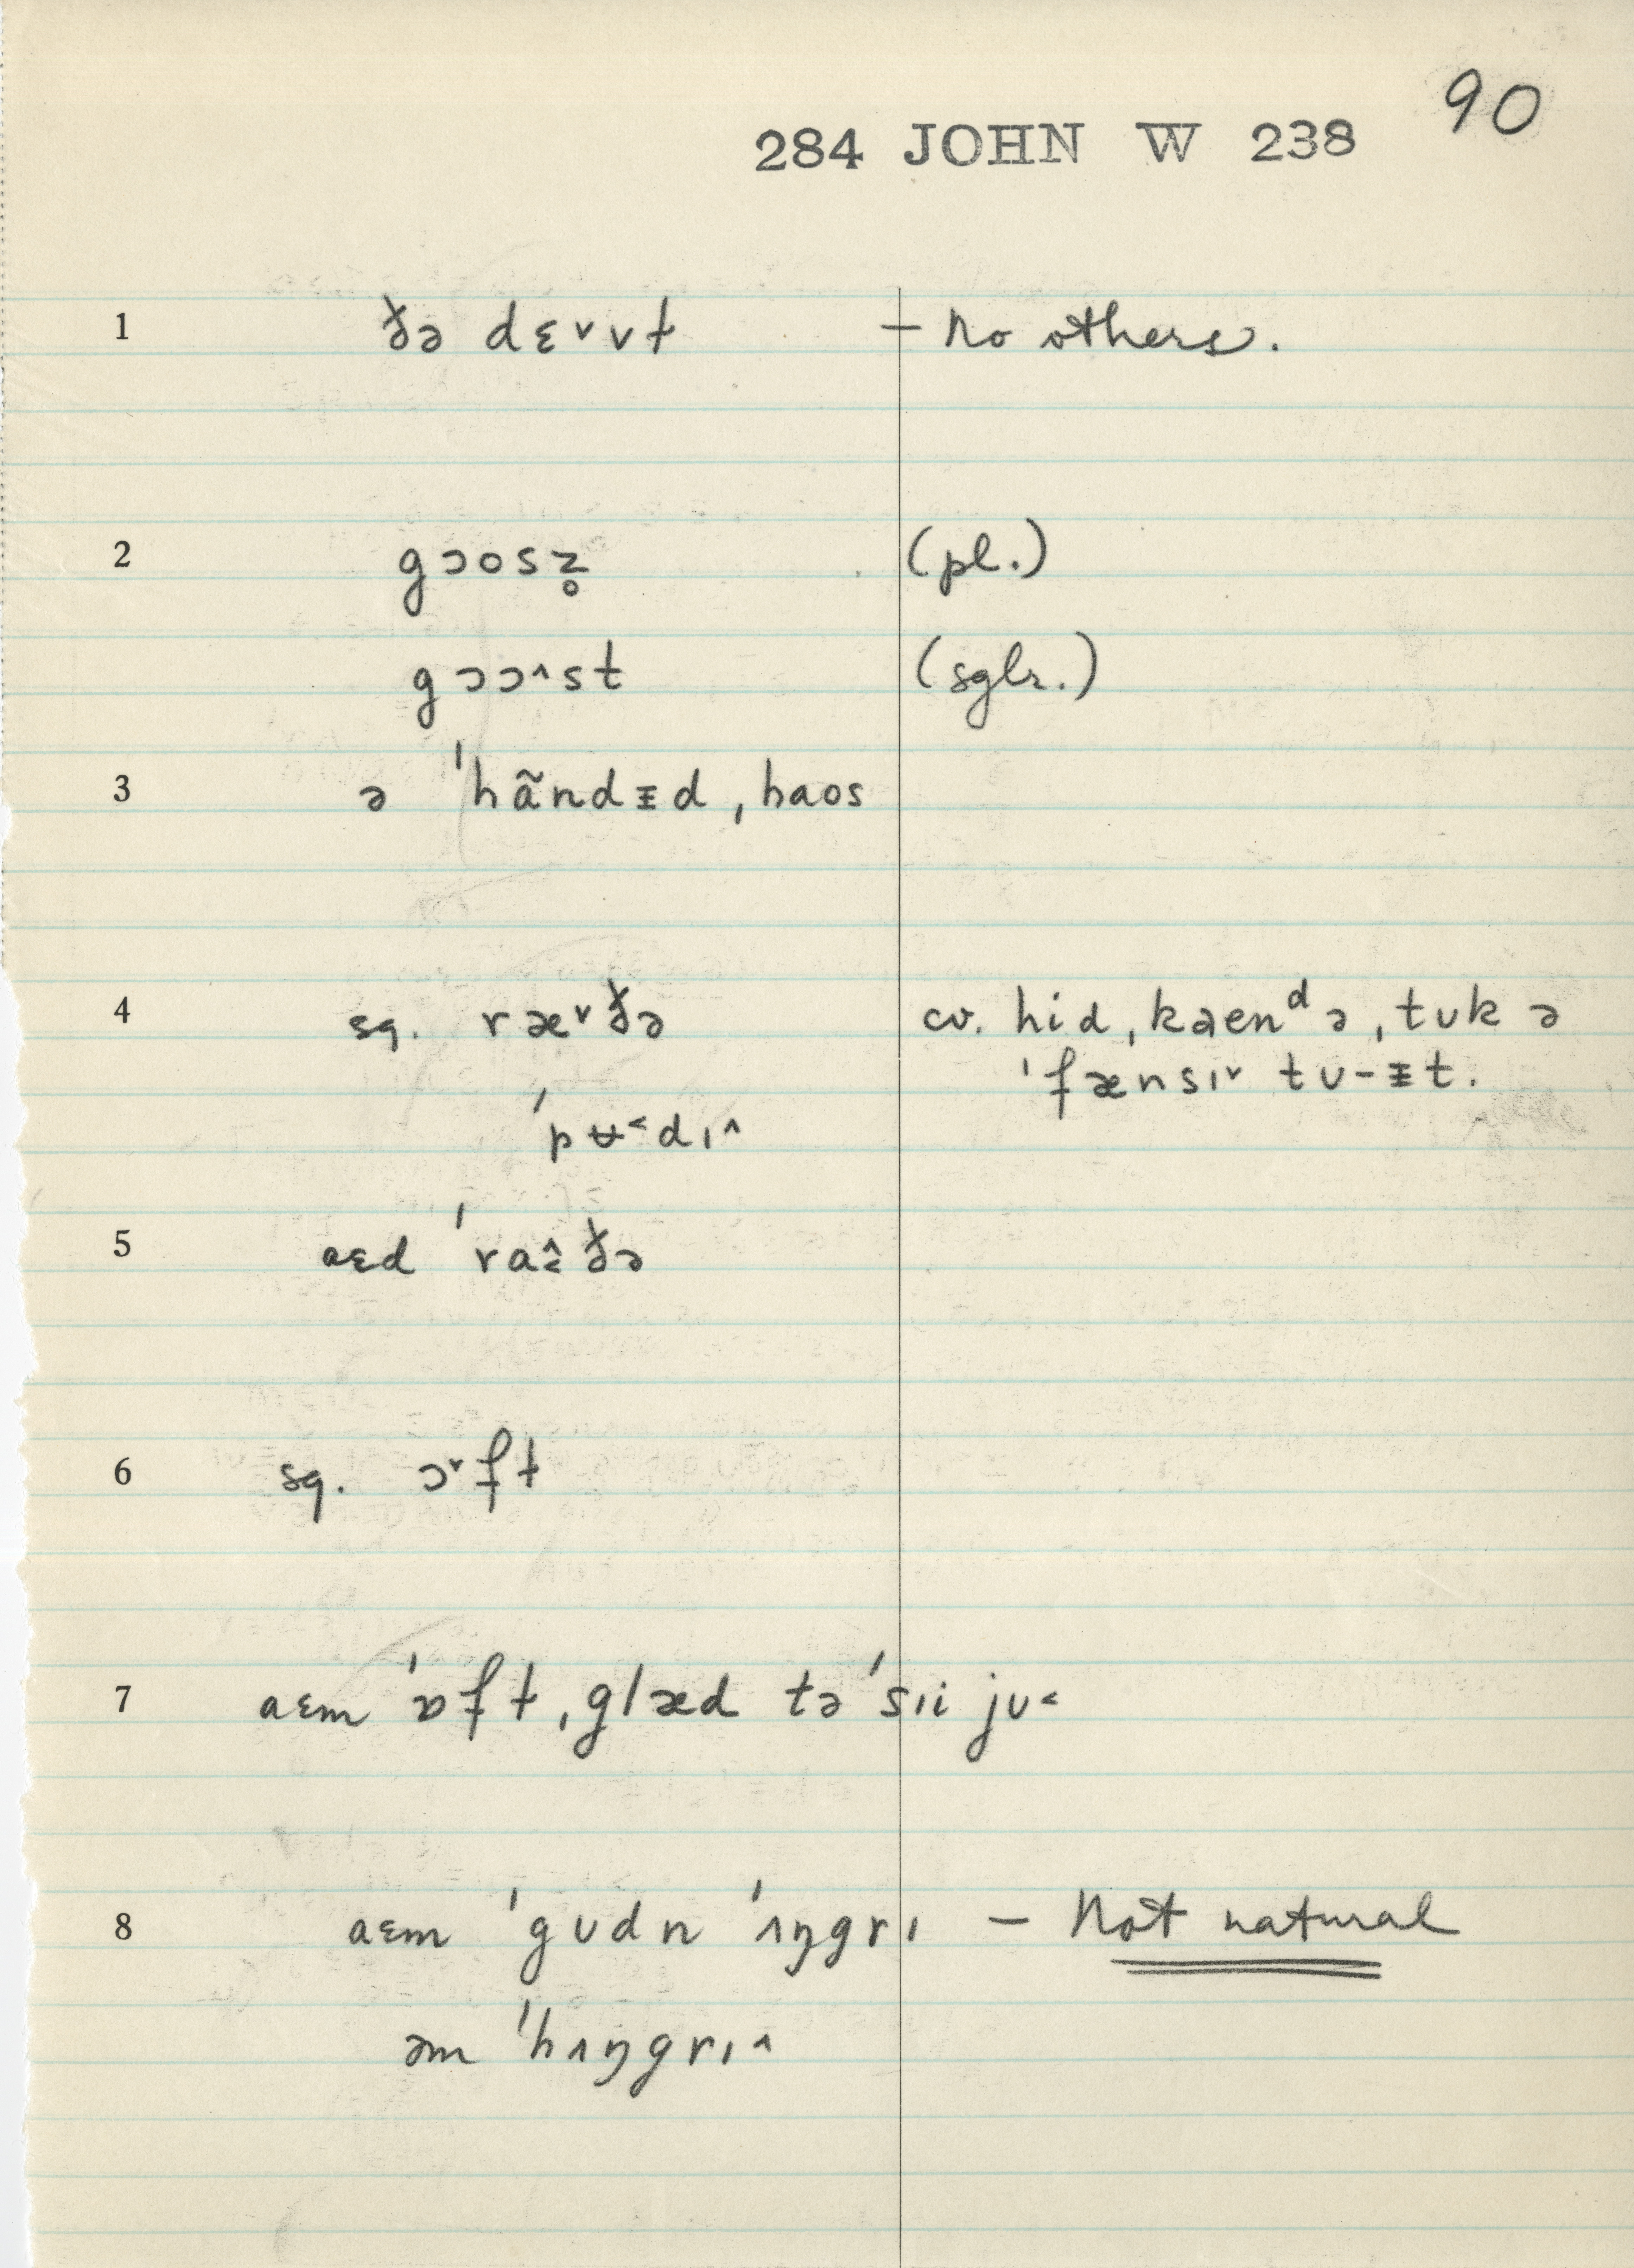 90
284 JOHN W 238
1 ðə dɛ˅vɫ — No others.
2 gɔosz̥ (pl.)
gɔɔ˄st (sglr.)
3 ə ˈhãndᵻd ˌhaos
4 sq. ræ˅ðə cv. hid ˌkaenᵈ ə ˌtʊk ə
ˈfænsɪ˅ tʊ-ᵻt.
ˈpʊ̵˂dɪ˄
5 aɛd ˈraɛ̂ðə
6 sq. ɔ˅ft
7 aɛm ˈɒft ˌglæd tə ˈsɪi jʊ˂
8 aɛm ˈgʊdn ˈʌŋgrɪ — Not natural
əm ˈhʌŋgrɪ˄